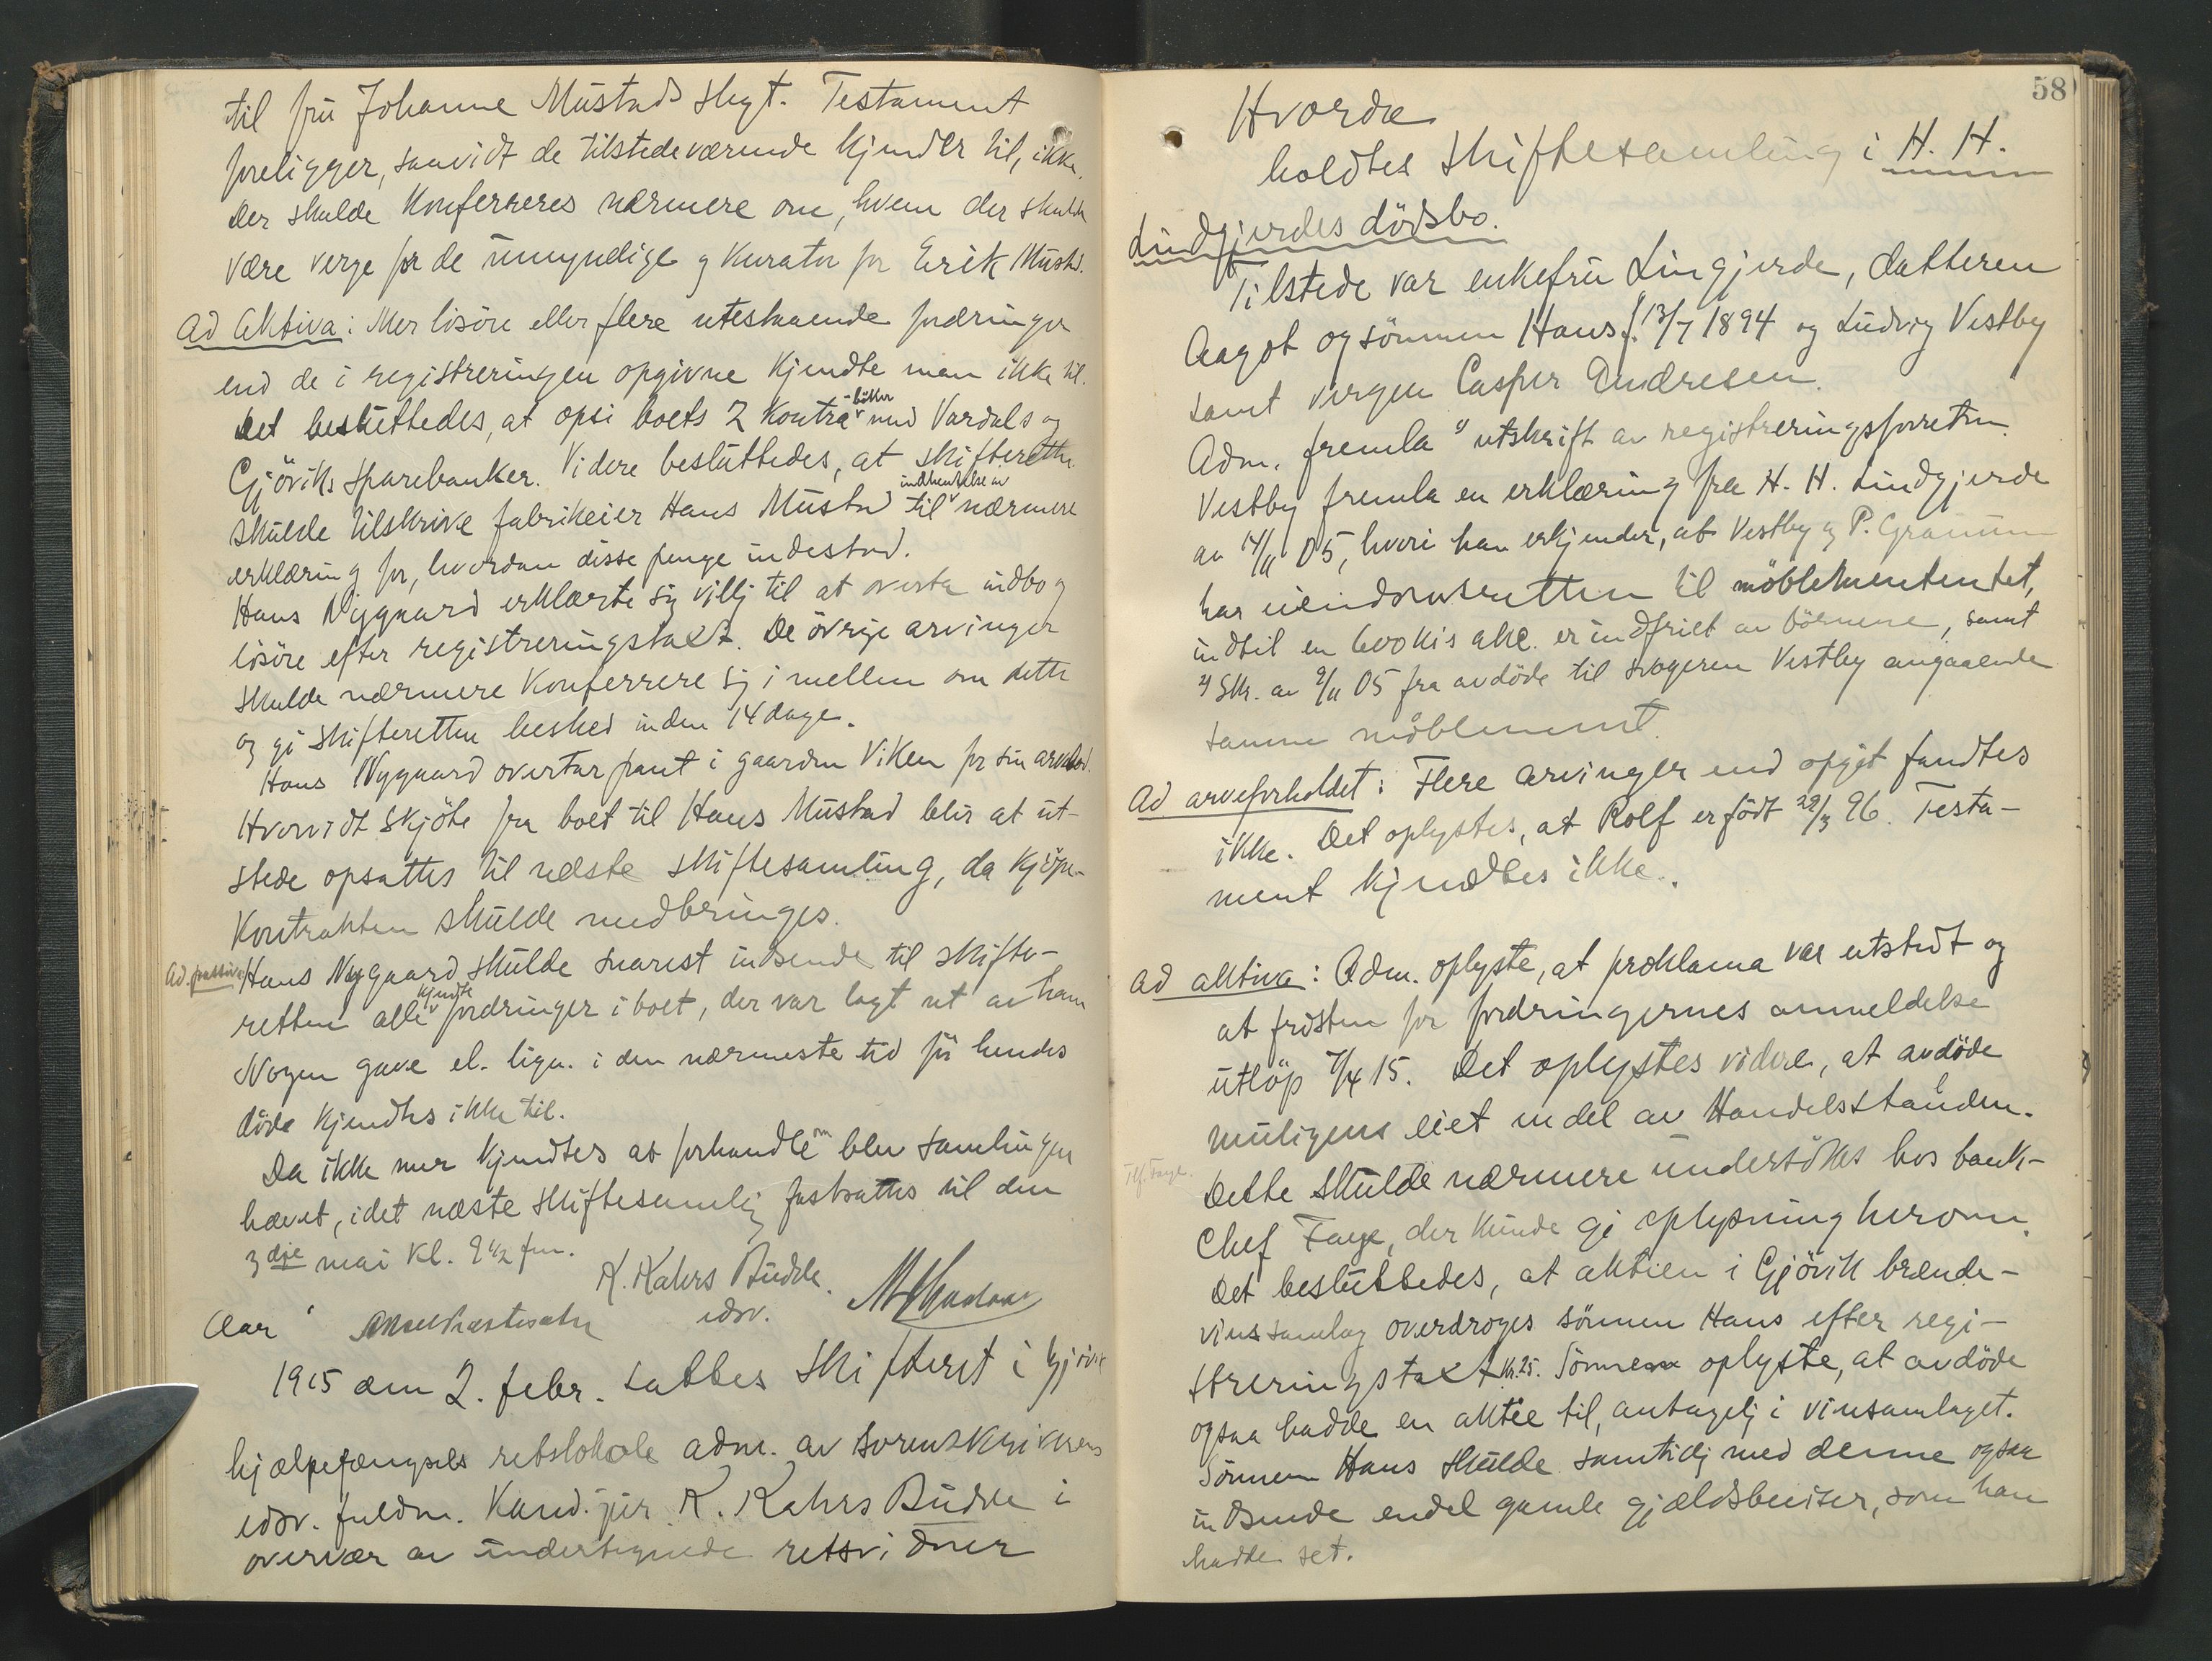 til fru Johanne Mustads slegt. Testament
foreligger, saavidt de tilstedeværende kjender til, ikke.
Der skulde konferreres nærmere om, hvem der skulde
være verge for de umyndige og kurator for Erik Mustad.
Ad Aktiva: Mer lösöre eller flere utestaaende fordringer
end de i registreringen opgivne kjendte man ikke til.
Det besluttedes, at opsi boets 2 kontra-böker med Vardals og
Gjöviks sparebanker. Videre besluttedes, at skifteretten
skulde tilskrive fabrikeier Hans Mustad til indhentelse av nærmere
erklæring for, hvordan disse penge indestod.
Hans Nygaard erklærte sig villig til at overta indbo og
lösöre efter registreringstakst. De övrige arvinger
skulde nærmere konferrere sig imellem om dette
og gi skifteretten besked inden 14 dage.
Hans Nygaard overtar pant i gaarden Viken for sin arvelod.
Hvorvidt skjöte fra boet til Hans Mustad blir at ut-
stede opsattes til næste skiftesamling, da kjöpe-
kontrakten skulde medbringes.
Ad passiva: Hans Nygaard skulde snarest indsende til skifte-
retten alle kjendte fordringer i boet, der var lagt ut av ham
Nogen gave el. lign. i den nærmeste tid för hendes
död kjendtes ikke til.
Da ikke mer kjendtes at forhandle om blev samlingen
hævet, idet næste skiftesamling fastsattes til den
3dje mai kl. 9 1/2 fm.
K. Kahrs Budde.
edsv.
Aar
1915 den 2. febr. sattes skifteret i Gjövik
hjælpefængsels retslokale adm. av sorenskriverens
edsv. fuldm. kand. jur. K. Kahrs Budde i
overvær av undertegnede retsvidner
58
Hvorda
holdtes skiftesamling i H. H.
Lindgjerdes dödsbo.
Tilstede var enkefru Lingjerde, datteren
Aagot og sönnen Hans f. 13/7 1894 og Ludvig Vestby
samt vergen Casper Endresen.
Adm. fremla 1) utskrift av registreringsforretn.
Vestby fremla en erklæring fra H. H. Lindgjerde
av 14/11 05, hvori han erkjender, at Vestby og P. Granum
har eiendomsretten til möblemententet,
indtil en 600 kis akc. er indfriet av börnene, samt
2) Skr. av 9/11 05 fra avdöde til svogeren Vestby angaaende
samme möblement.
Ad arveforholdet: Flere arvinger end opgit fandtes
ikke. Det oplystes, at Rolf er födt 29/3 96. Testa-
ment kjendtes ikke.
Ad aktiva: Adm. oplyste, at proklama var utstedt og
at fristen for fordringernes anmeldelse
utlöp 7/4 15. Det oplystes videre, at avdöde
muligens eiet en del av Handelsstanden.
Tlf. Faye.
Dette skulde nærmere undersökes hos bank-
chef Faye, der kunde gi oplysning herom.
Det besluttedes, at aktien i Gjövik brænde-
vinssamlag overdroges sönnen Hans efter regi-
streringstakst kr. 25. Sönnen oplyste, at avdöde
ogsaa hadde en aktie til, antagelig i vinsamlaget.
Sönnen Hans skulde samtidig med denne ogsaa
indsende endel gamle gjældsbeviser, som han
hadde set.